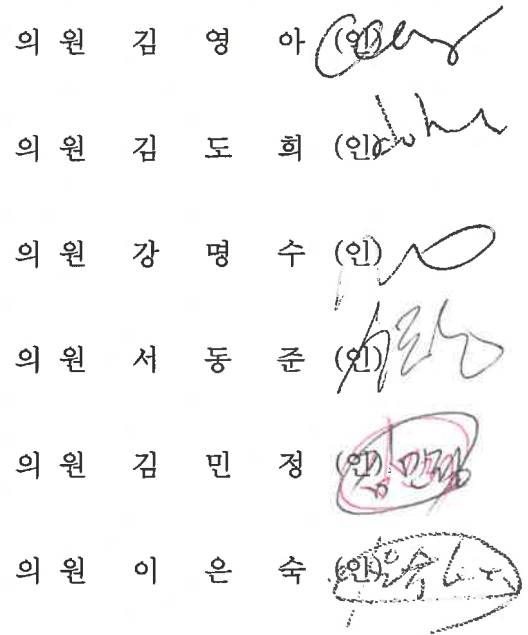 의 원 김 영 아 (인)
의 원 김 도 희 (인)
의 원 강 명 수 (인)
의 원 서 동 준 (인)
의 원 김 민 정 (인) 김민정
의 원 이 은 숙 (인)